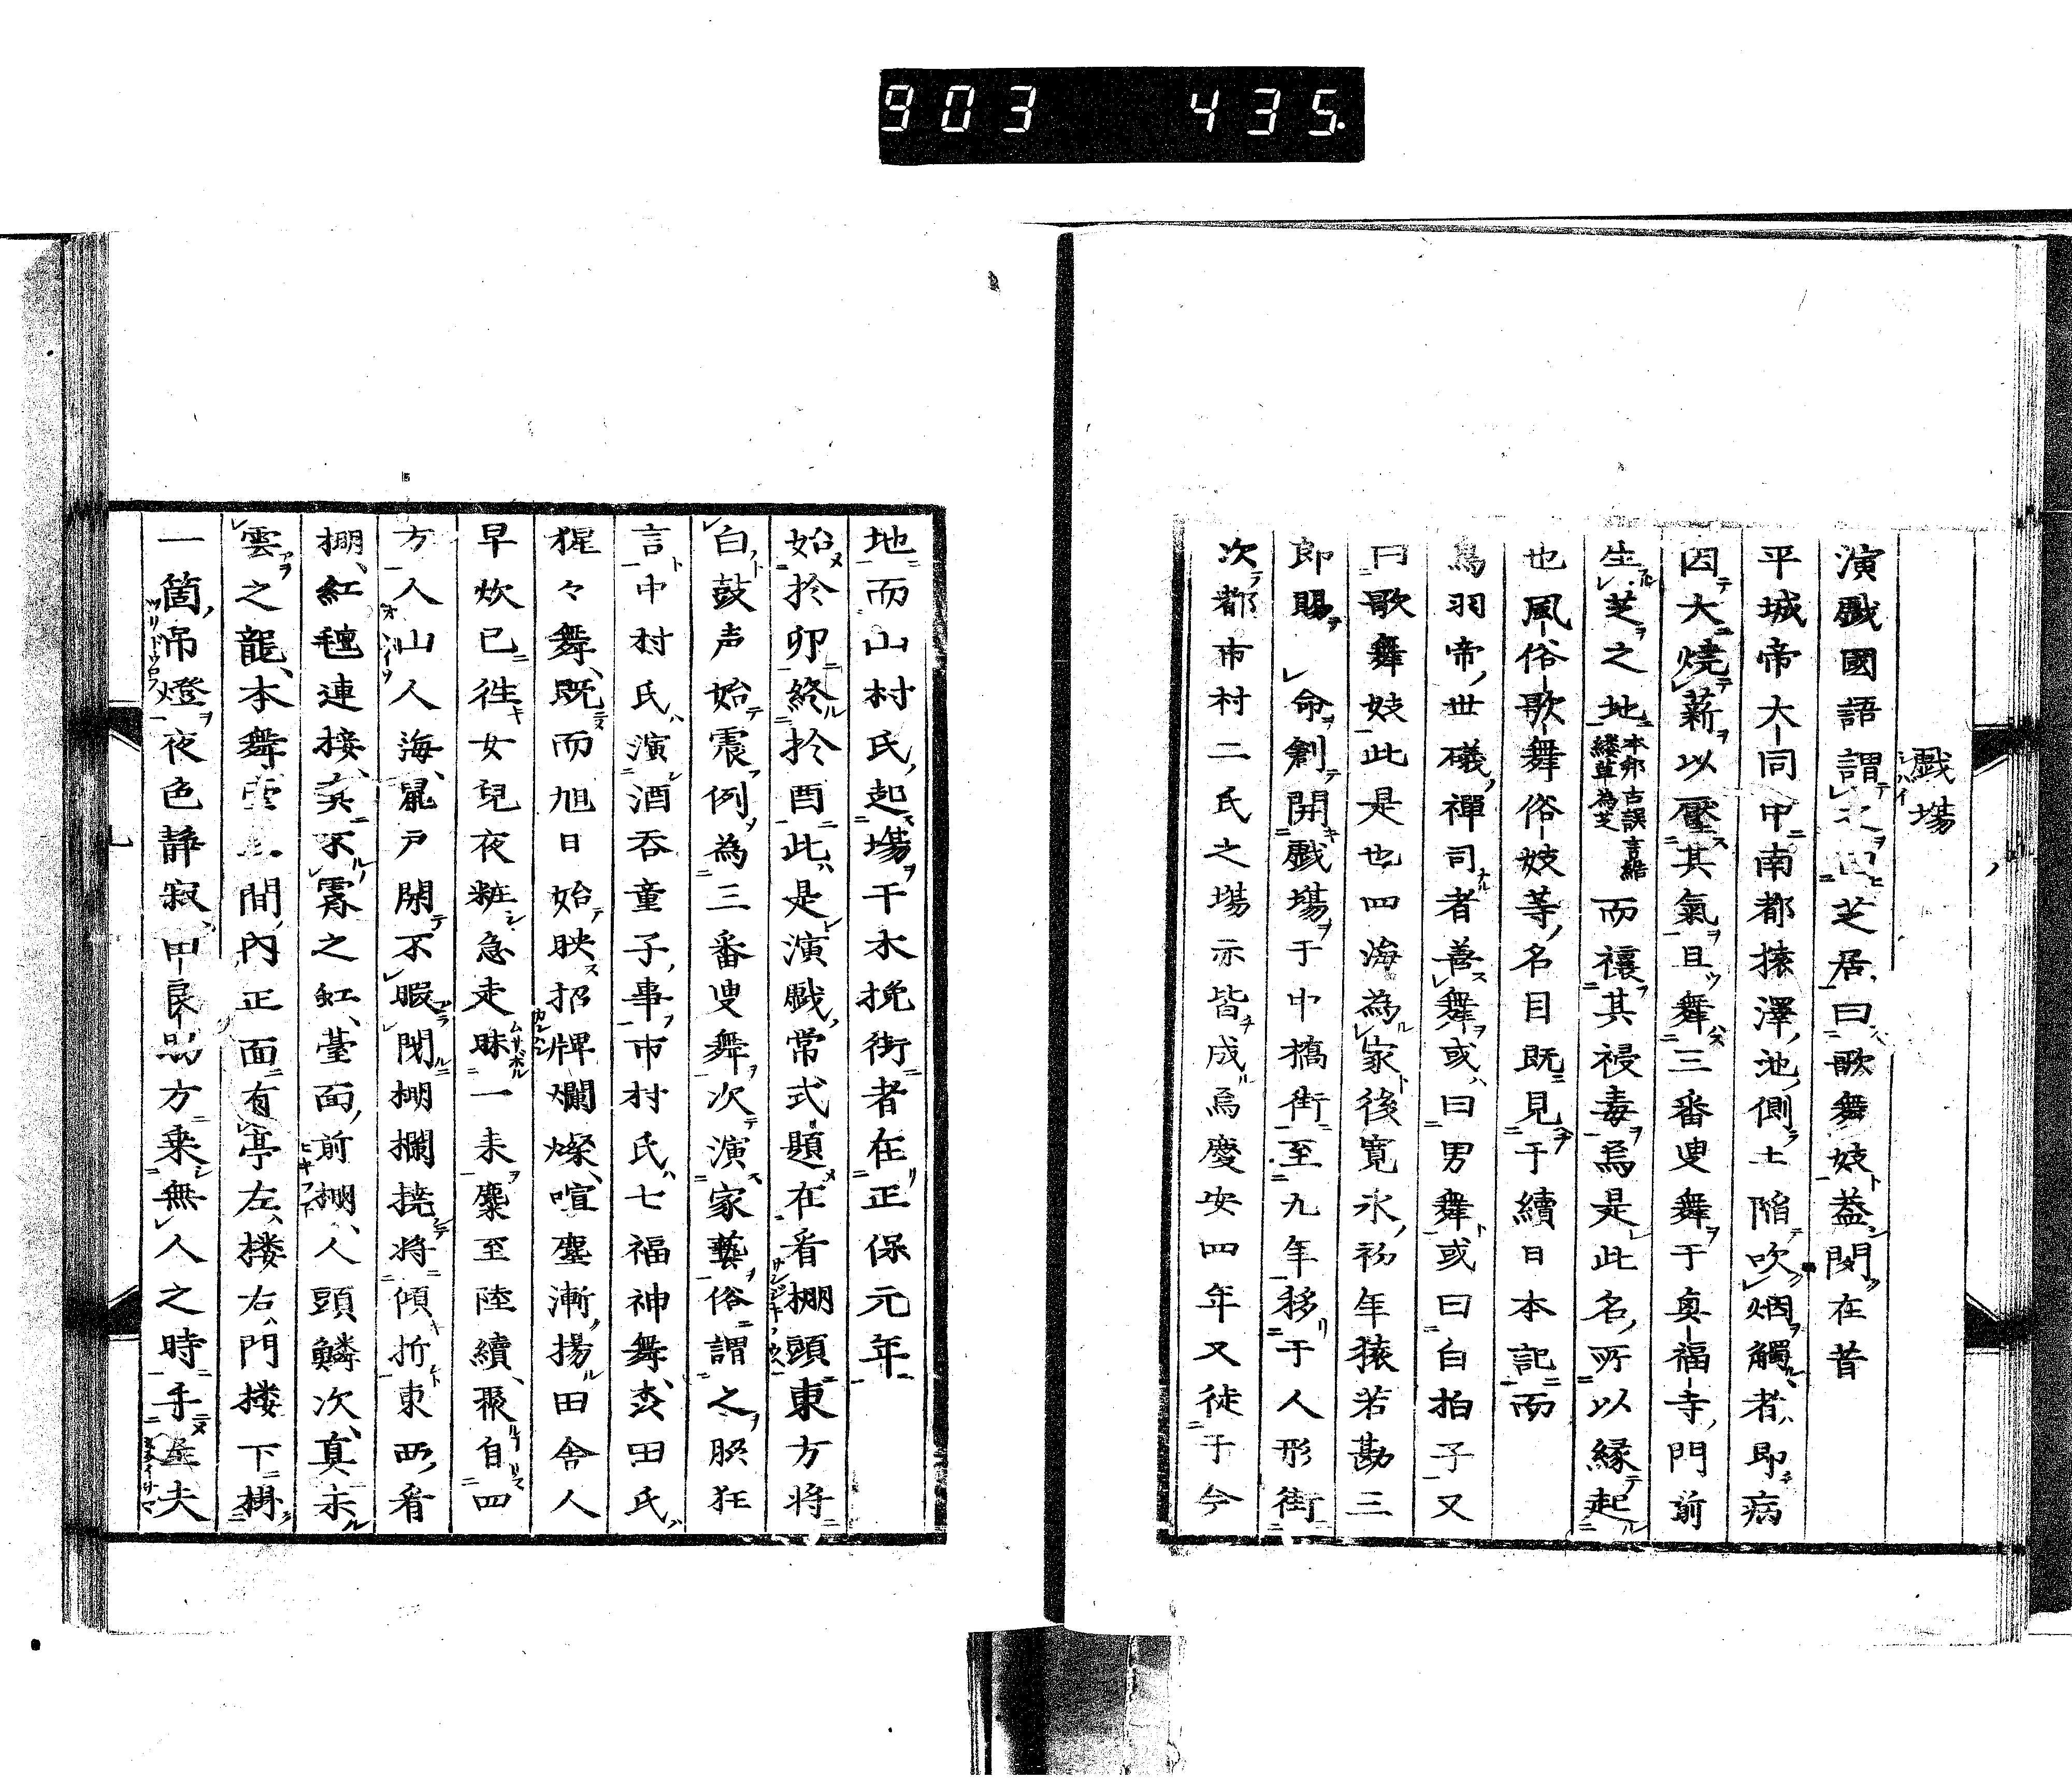 903 435.
戯場
演戯國語謂之芝居曰歌舞妓蓋閔在昔
平城帝大同中南都猿澤池側土陥吹烟觸者即病
因大燒薪以壓其氣且舞三番叟舞于興福寺門前
生芝之地本邦古誤言結縷草為芝而禳其祲毒焉是此名所以縁起
也風俗歌舞俗妓等名目既見于續日本記而
鳥羽帝世礒禪司者善舞或曰男舞或曰白拍子又
曰歌舞妓此是也四海為家後寛永初年猿若勘三
郎賜 命創開戯場于中橋街至九年移于人形街
次都市村二氏之場亦皆成焉慶安四年又徙于今
地而山村氏起場干木挽街者在正保元年
始於卯終於酉此是演戯常式題在看棚頭東方將
白鼓声始震例為三番叟舞次演家藝俗謂之脇狂
言中村氏演酒呑童子事市村氏七福神舞森田氏
猩々舞既而旭日始映招牌爛燦喧塵漸揚田舎人
早炊已徃女兒夜粧急走眛一来麇至陸續聚自四
方人山人海鼠戸開不暇閉棚欄撓將傾折東西看
棚紅毯連接真不霽之虹臺面前棚人頭鱗次真未
雲之龍本舞間內正面有亭左楼右門楼下掛
一箇吊燈夜色静寂由良助方乗無人之時手夫
七